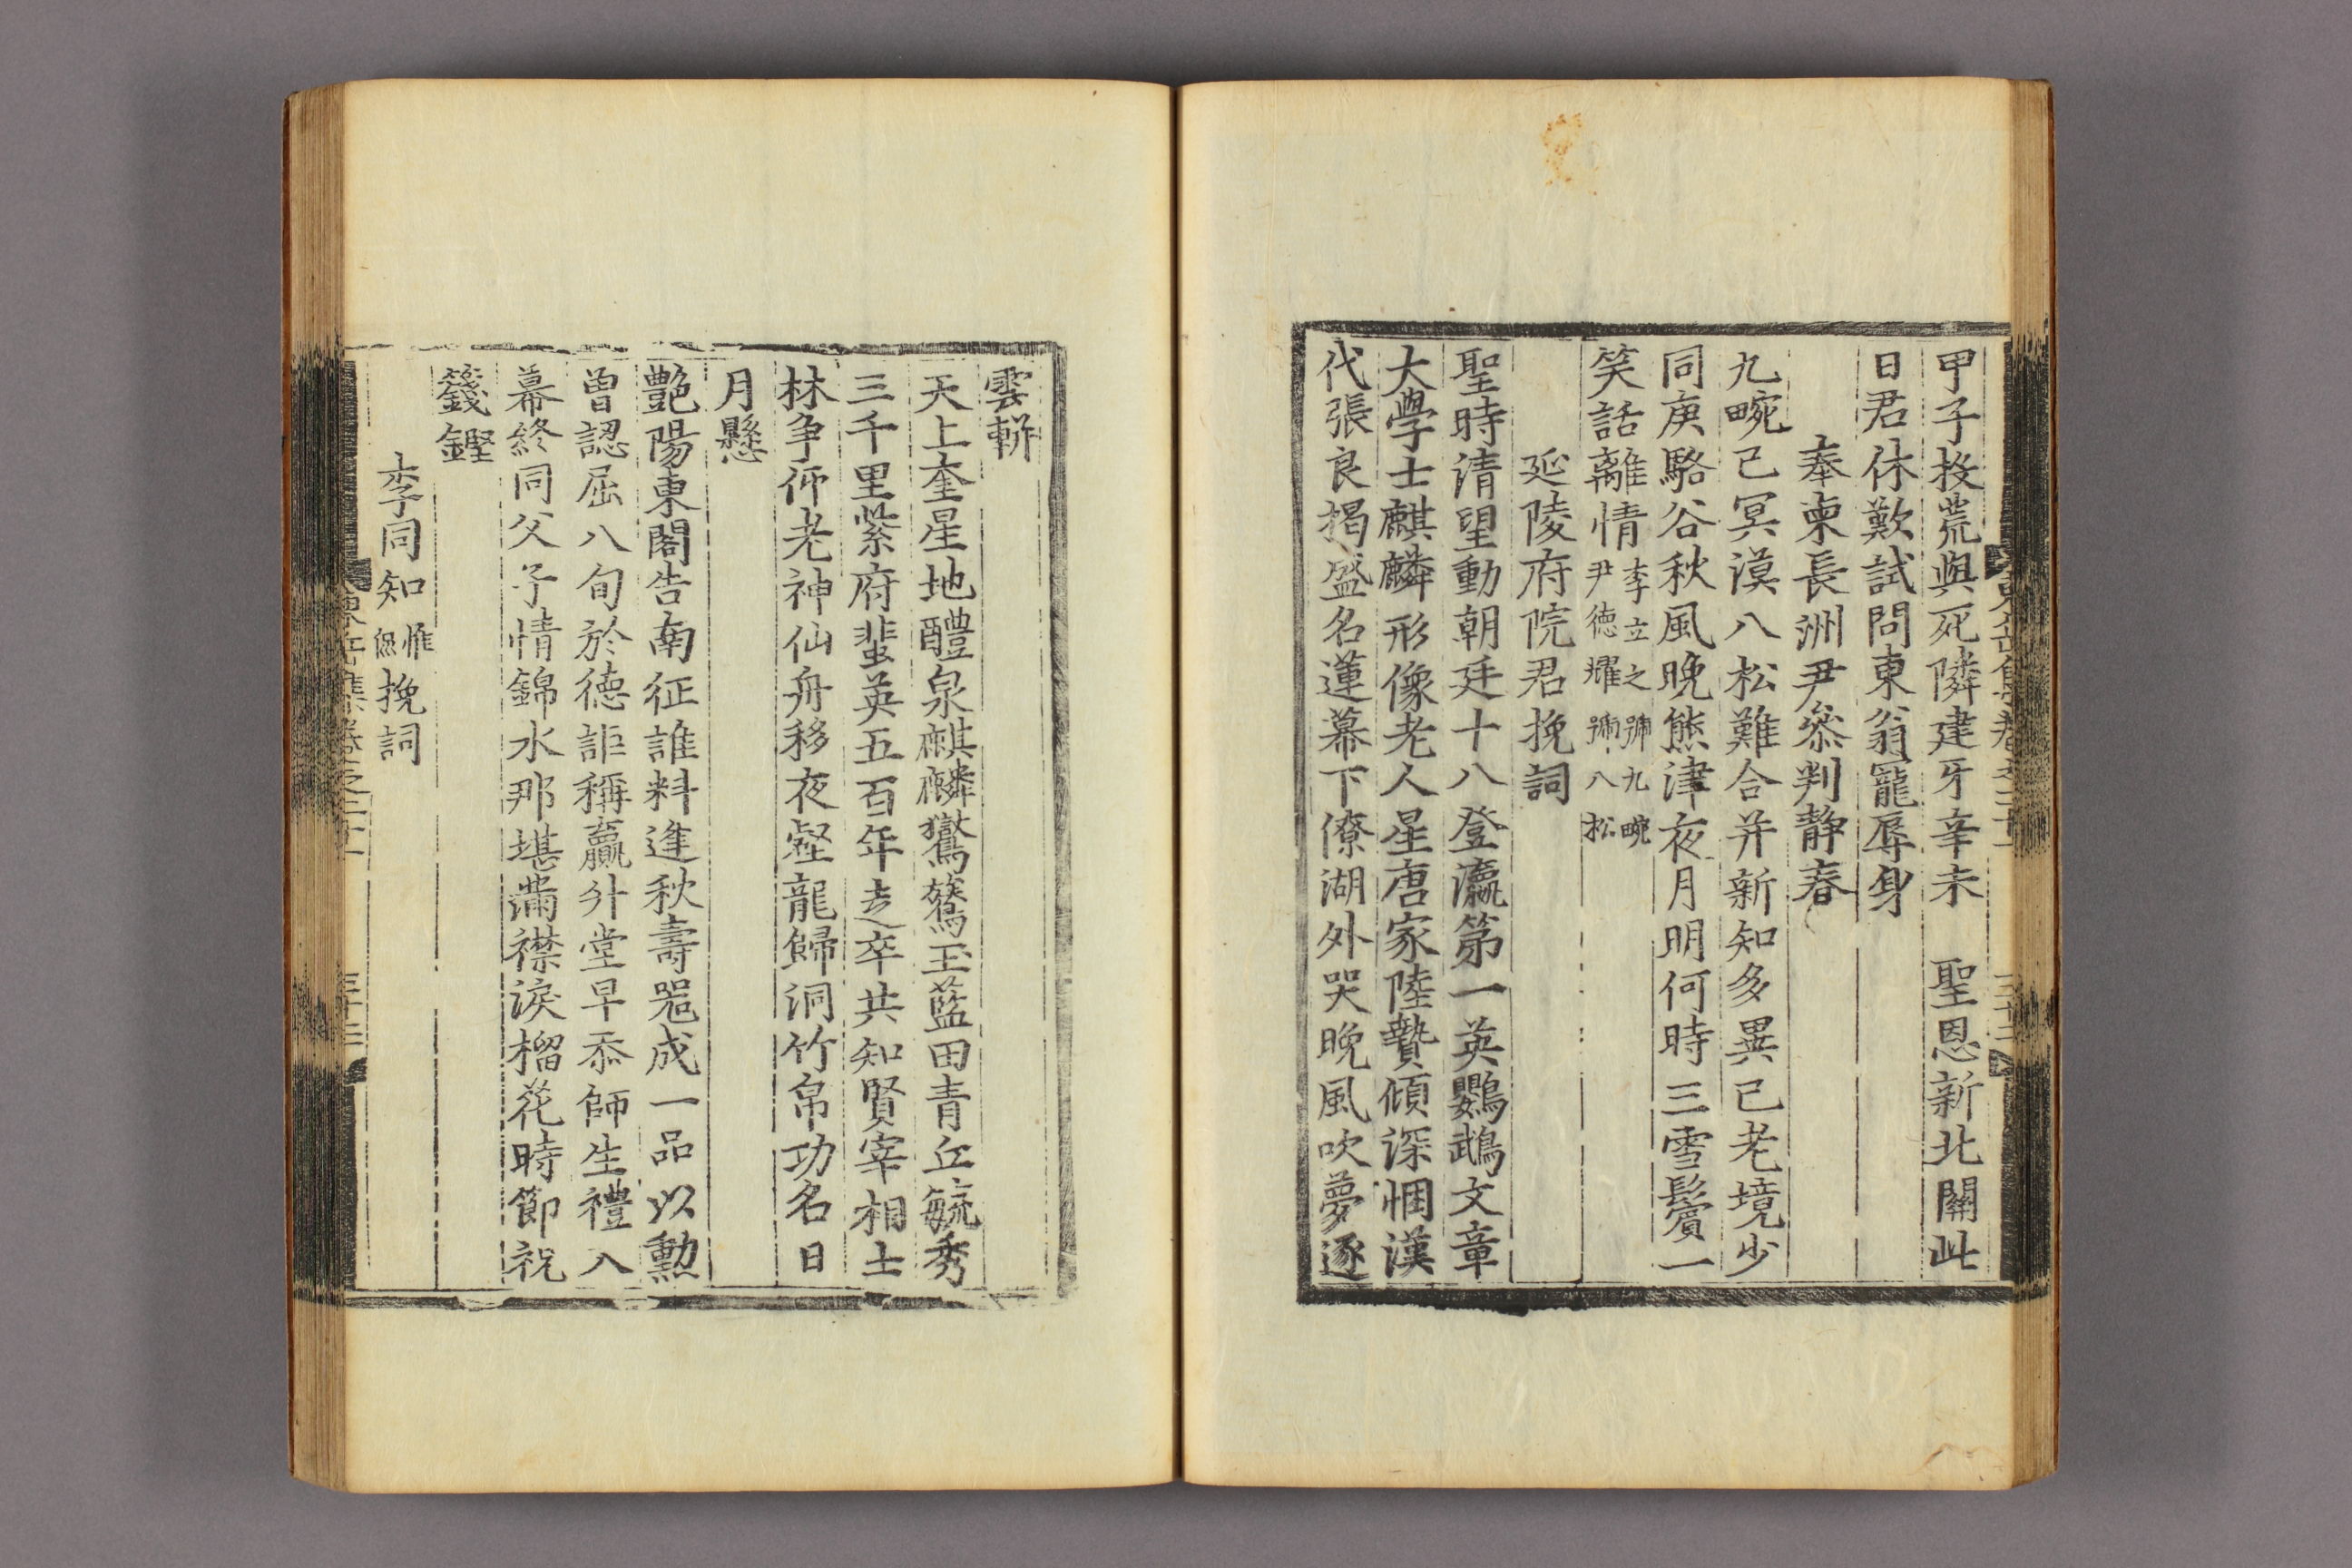 甲子投荒與死隣建牙辛未　聖恩新北闕此
日君休歎試問東翁寵辱身
奉柬長洲尹叅判静春
九畹已冥漠八松難合并新知多異已老境少
同庚駱谷秋風晚熊津夜月明何時三雪鬢一
笑話離情李立之號九畹
尹德耀號八松
延陵府院君挽詞
聖時清望動朝廷十八登瀛第一英鸚鵡文章
大學士麒麟形像老人星唐家陸贄傾深悃漢
代張良揭盛名蓮幕下僚湖外哭晚風吹夢逐
雲輧
天上奎星地醴泉麒麟鸑鷟玉藍田青丘毓秀
三千里紫府蜚英五百年走卒共知賢宰相士
林爭仰老神仙舟移夜壑龍歸洞竹帛功名日
月懸
艶陽東閣告南征誰料逢秋壽器成一品以勲
曾認屈八旬於德詎稱贏升堂早忝師生禮入
幕終同父子情錦水那堪滿襟淚榴花時節祝
籛鏗
李同知惟侃挽詞
東岳集卷之二十一
三十二